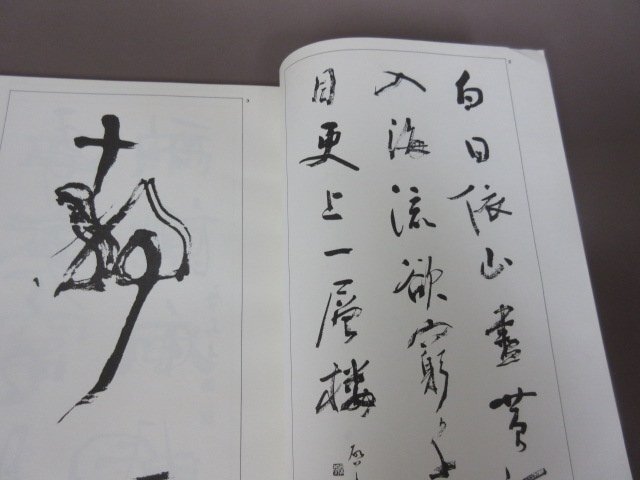 白日依山盡黄
入海流欲窮千
目更上一層樓